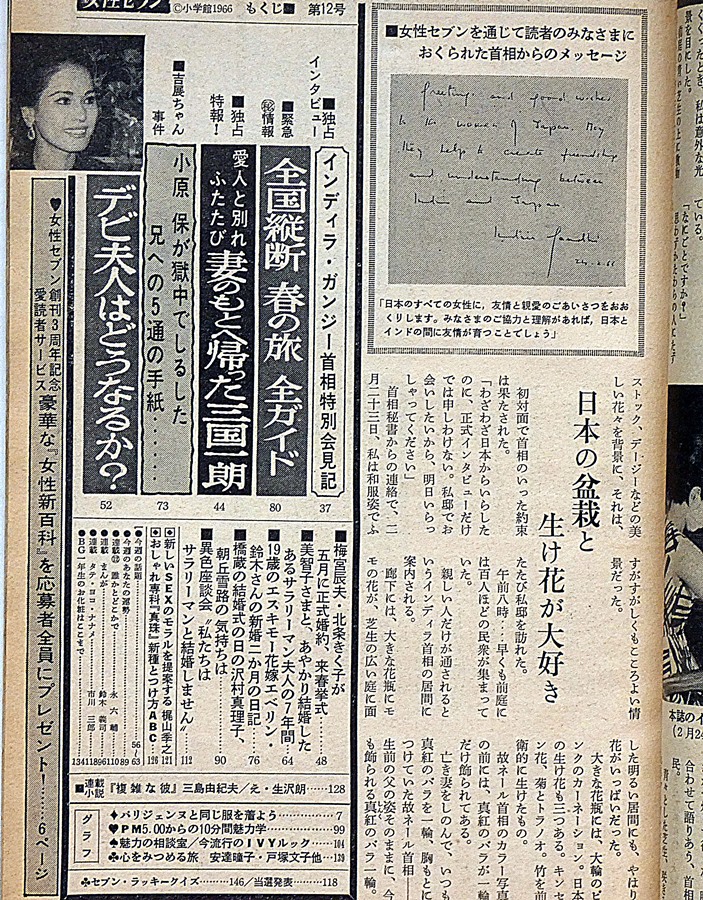 女性セブン
©小学館1966 もくじ■ 第12号
■独占インタビュー
インディラ・ガンジー首相特別会見記
37
■緊急㊙情報
全国縦断 春の旅 全ガイド
80
■独占特報!
愛人と別れふたたび
妻のもとへ帰った三国一朗
44
■吉展ちゃん事件
小原 保が獄中でしるした
兄への5通の手紙……
73
デビ夫人はどうなるか?
52
♥女性セブン創刊3周年記念
愛読者サービス
豪華な『女性新百科』を応募者全員にプレゼント!……6ページ
■梅宮辰夫・北条きく子が
五月に正式婚約、来春挙式 48
■美智子さまと、あやかり結婚した
あるサラリーマン夫人の7年間 64
■19歳のエスキモー花嫁エベリン・
鈴木さんの新婚二か月の日記 76
■橋蔵の結婚式の日の沢村真理子、
朝丘雪路の気持ちは 90
■異色座談会〝私たちは
サラリーマンと結婚しません〟 112
新しいSEXのモラルを提案する 梶山季之 121
おしゃれ専科『真珠』新種とつけ方ABC 126
●今週の話題 56〜63
●今週のあなたの運勢
●連載 誰かとどこかで 永 六輔
●連載 まんが 鈴木義司
●連載 タテ・ヨコ・ナナメ 市川三郎
●BG一年生のお化粧はここまで
■連載小説『複雑な彼』三島由紀夫/え・生沢朗……128
グラフ
♦パリジェンヌと同じ服を着よう……7
♥PM5.00からの10分間魅力学……99
♠魅力の相談室/今流行のIVYルック……104
♣心をみつめる旅 安達瞳子・戸塚文子他…139
♧セブン・ラッキークイズ……146/当選発表……118
■女性セブンを通じて読者のみなさまに
おくられた首相からのメッセージ
Greetings and good wishes
to the women of Japan. May
they help to create friendship
and understanding between
India and Japan.
Indira Gandhi
24.2.66
「日本のすべての女性に,友情と親愛のごあいさつをおお
くりします。みなさまのご協力と理解があれば,日本と
インドの間に友情が育つことでしょう」
ストック、デージーなどの美
しい花々を背景に、それは、
すがすがしくもこころよい情
景だった。
日本の盆栽と
生け花が大好き
初対面で首相のいった約束
は果たされた。
「わざわざ日本からいらした
のに、正式インタビューだけ
では申しわけない。私邸でお
会いしたいから、明日いらっ
しゃってください」
首相秘書からの連絡で、二
月二十三日、私は和服姿でふ
たたび私邸を訪れた。
午前八時…早くも前庭に
は百人ほどの民衆が集まって
いた。
親しい人だけが通されると
いうインディラ首相の居間に
案内される。
廊下には、大きな花瓶にモ
モの花が、芝生の広い庭に面
した明るい居間にも、やはり
花がいっぱいだった。
大きな花瓶には、大輪のピ
ンクのカーネーション。日本
の生け花も三つある。キンセ
ン花、菊とトラノオ。竹を前
衛的に生けたもの。
故ネール首相のカラー写真
の前には、真紅のバラが一輪
だけ飾られてある。
亡き妻をしのんで、いつも
真紅のバラを一輪、胸もとに
つけていた故ネール首相――
生前の父の姿そのままに、今
も飾られる真紅のバラ一輪。